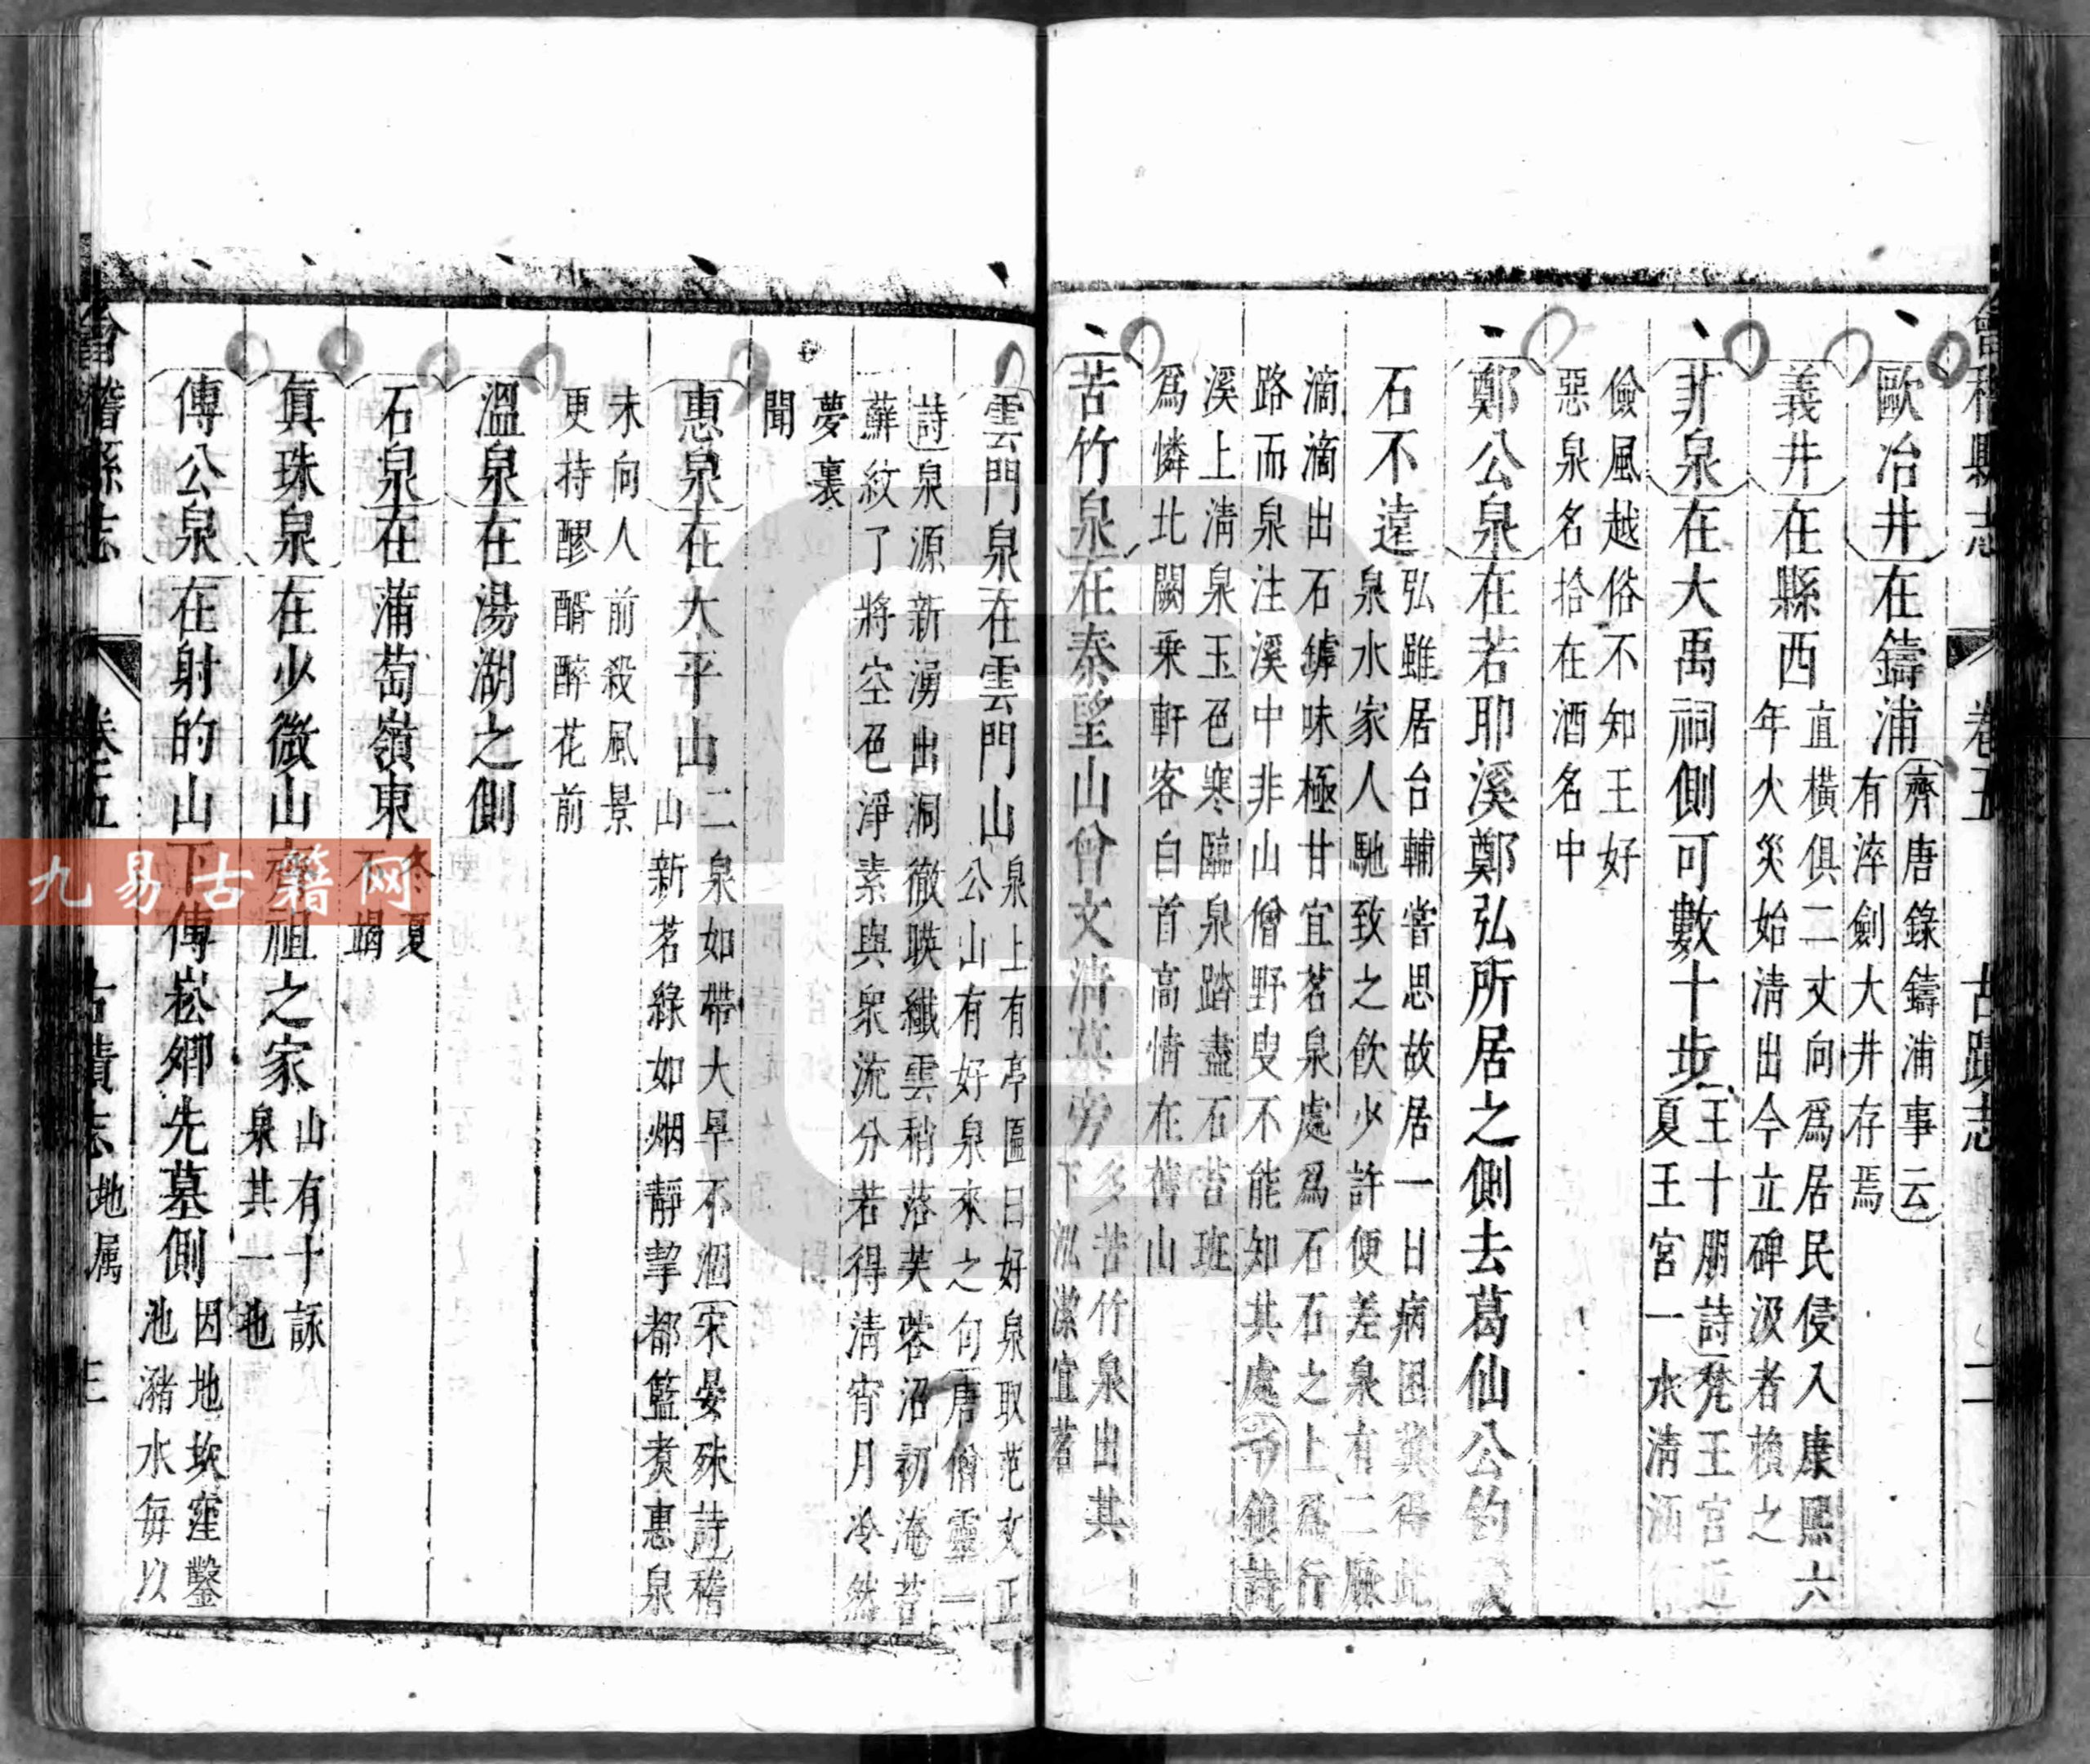 會稽縣志
卷五
古蹟志
二
歐冶井在鑄浦
齊唐錄鑄浦事云
有淬劍大井存焉
義井在縣西
直橫俱二丈向爲居民侵入康熙六
年火災始清出今立碑汲者賴之
菲泉在大禹祠側可數十步
王十朋詩梵王宮近
夏王宮一水清涵
儉風越俗不知王好
惡泉名拾在酒名中
鄭公泉在若耶溪鄭弘所居之側去葛仙公釣
石不遠
弘雖居台輔嘗思故居一日病困冀得此
泉水家人馳致之飲少許便差泉有二
滴滴出石罅味極甘宜茗泉處爲石石之上爲行
路而泉注溪中非山僧野叟不能知其處
詩
溪上清泉玉色寒臨泉踏盡石苔班
爲憐北闕乘軒客白首高情在舊山
苦竹泉在秦望山曾文清墓旁
多苦竹泉出其
下泓潔宜茗
雲門泉在雲門山
泉上有亭匾曰好泉取范文正
公山有好泉來之句唐僧靈一
詩泉源新湧出洞徹暎纖雲稍落芙蓉沼初淹苔
蘚紋了將空色淨素與衆流分若得清宵月泠然
夢裏
聞
惠泉在大平山
二泉如帶大旱不涸宋晏殊詩稽
山新茗綠如烟靜挈都籃煑惠泉
未向人前殺風景
更持醪醑醉花前
溫泉在湯湖之側
石泉在蒲萄嶺東
冬夏
不竭
眞珠泉在少微山齊祖之家
山有十詠
泉其一也
傅公泉在射的山下傅崧卿先墓側
因地坎窪鑿
池瀦水每以
會稽縣志
卷五
古蹟志
地属
三
九易古籍网